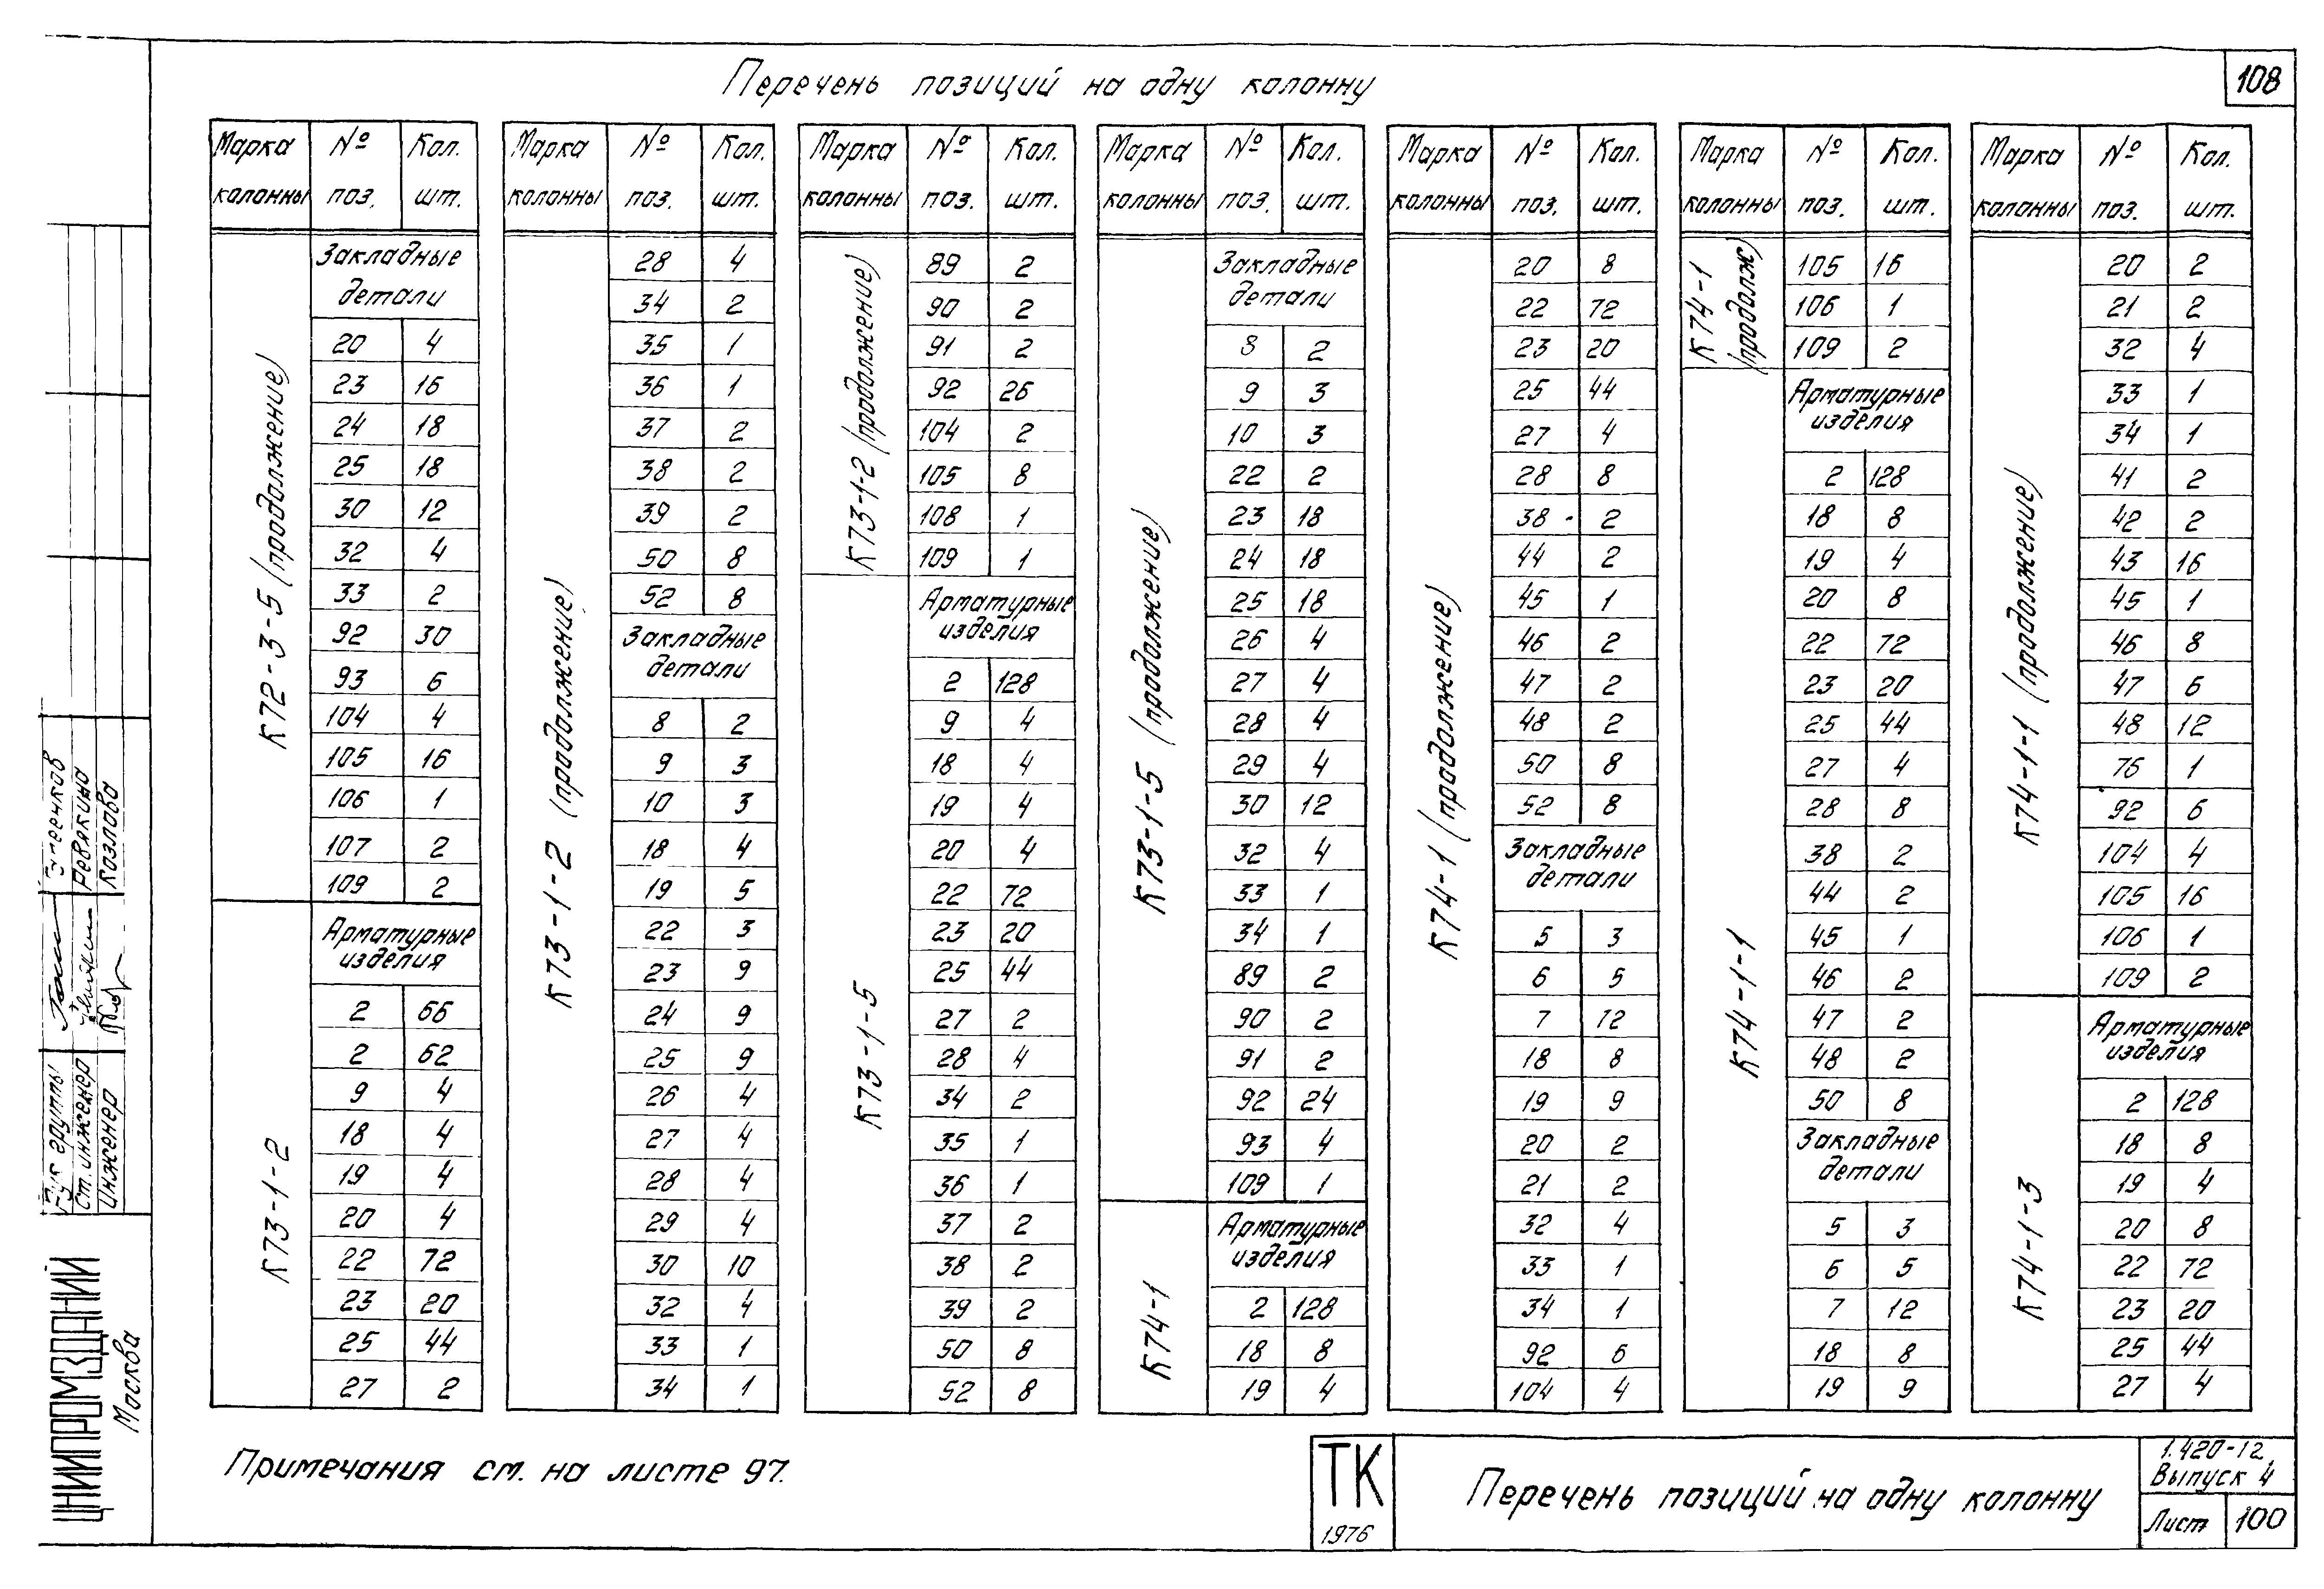 108
Перечень позиций на одну колонну
Марка колонны № поз. Кол. шт.
К72-3-5 (продолжение)
Закладные детали
20 4
23 16
24 18
25 18
30 12
32 4
33 2
92 30
93 6
104 4
105 16
106 1
107 2
109 2
К73-1-2
Арматурные изделия
2 66
2 62
9 4
18 4
19 4
20 4
22 72
23 20
25 44
27 2
Марка колонны № поз. Кол. шт.
К73-1-2 (продолжение)
28 4
34 2
35 1
36 1
37 2
38 2
39 2
50 8
52 8
Закладные детали
8 2
9 3
10 3
18 4
19 5
22 3
23 9
24 9
25 9
26 4
27 4
28 4
29 4
30 10
32 4
33 1
34 1
Марка колонны № поз. Кол. шт.
К73-1-2 (продолжение)
89 2
90 2
91 2
92 26
104 2
105 8
108 1
109 1
К73-1-5
Арматурные изделия
2 128
9 4
18 4
19 4
20 4
22 72
23 20
25 44
27 2
28 4
34 2
35 1
36 1
37 2
38 2
39 2
50 8
52 8
Марка колонны № поз. Кол. шт.
К73-1-5 (продолжение)
Закладные детали
8 2
9 3
10 3
22 2
23 18
24 18
25 18
26 4
27 4
28 4
29 4
30 12
32 4
33 1
34 1
89 2
90 2
91 2
92 24
93 4
109 1
К74-1
Арматурные изделия
2 128
18 8
19 4
Марка колонны № поз. Кол. шт.
К74-1 (продолжение)
20 8
22 72
23 20
25 44
27 4
28 8
38 2
44 2
45 1
46 2
47 2
48 2
50 8
52 8
Закладные детали
5 3
6 5
7 12
18 8
19 9
20 2
21 2
32 4
33 1
34 1
92 6
104 4
Марка колонны № поз. Кол. шт.
К74-1 (продолж)
105 16
106 1
109 2
К74-1-1
Арматурные изделия
2 128
18 8
19 4
20 8
22 72
23 20
25 44
27 4
28 8
38 2
44 2
45 1
46 2
47 2
48 2
50 8
Закладные детали
5 3
6 5
7 12
18 8
19 9
Марка колонны № поз. Кол. шт.
К74-1-1 (продолжение)
20 2
21 2
32 4
33 1
34 1
41 2
42 2
43 16
45 1
46 8
47 6
48 12
76 1
92 6
104 4
105 16
106 1
109 2
К74-1-3
Арматурные изделия
2 128
18 8
19 4
20 8
22 72
23 20
25 44
27 4
Примечания см. на листе 97.
ТК
1976
Перечень позиций на одну колонну
1.420-12
Выпуск 4
Лист 100
Рук группы
Ст. инженер Ревякина
Инженер Козлова
ЦНИИПРОМЗДАНИЙ
Москва